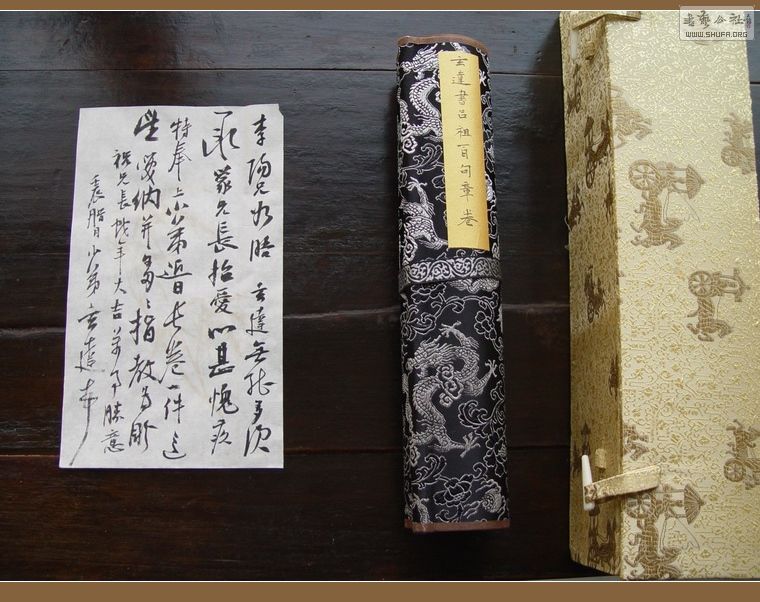 書藝公社
WWW.SHUFA.ORG
玄達書呂祖百句章卷
李陽兄如晤 玄達無能多須
承蒙兄長抬愛心甚愧疚
特奉上小弟近書長卷一件
望愛納并多多指教為盼
祝兄長戊年大吉萬事勝意
小弟玄達奉